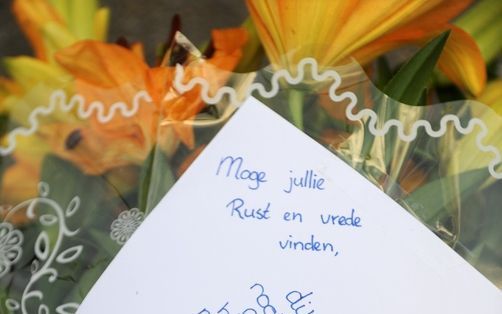 Moge jullie
Rust en vrede
vinden,